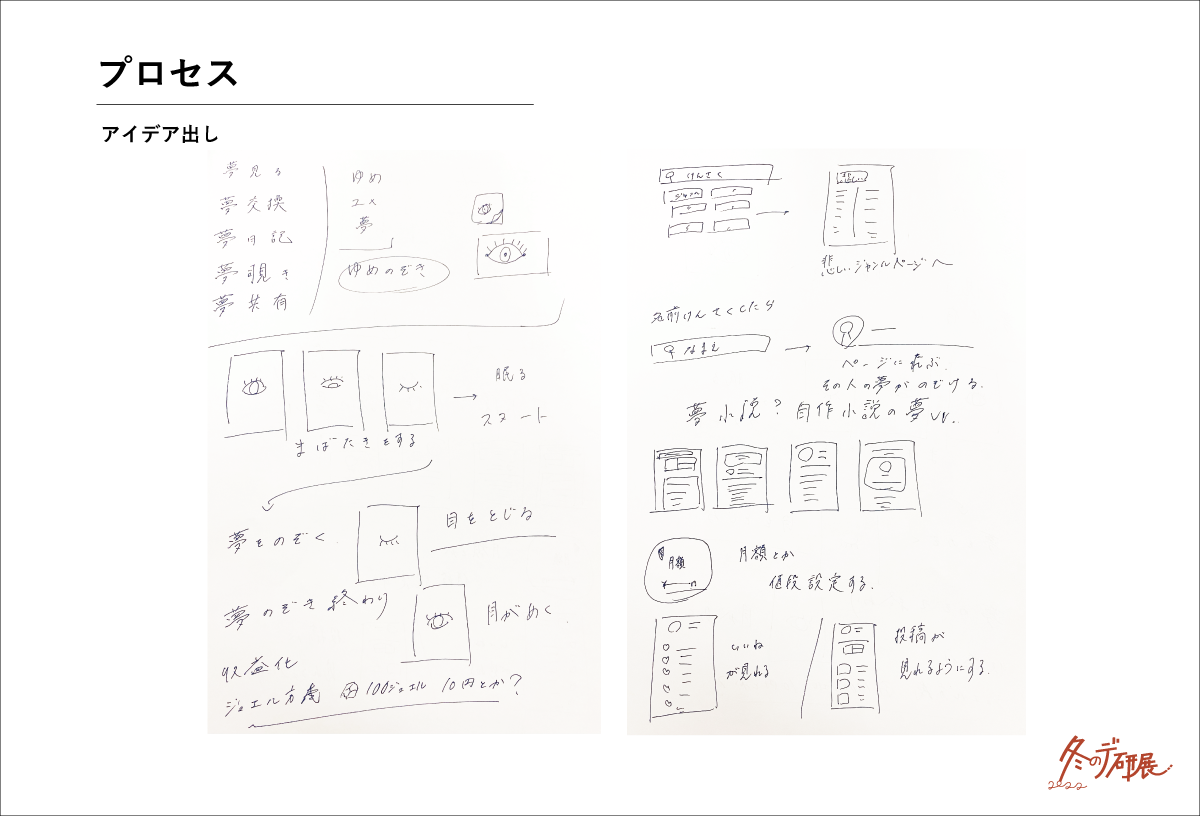 プロセス
アイデア出し
夢見る
夢交換
夢日記
夢覗き
夢共有
ゆめ
ユメ
夢
ゆめのぞき
まばたきをする
眠る
スタート
夢をのぞく
目をとじる
夢のぞき終わり
目がめく
収益化
ジュエル方式
100ジュエル 10円とか?
けんさく
ジャンル
悲しい
悲しいジャンルページへ
名前けんさくしたら
なまえ
ページに飛ぶ
その人の夢がのぞける。
夢小説? 自作小説の夢ver.
月額
月額とか
値段設定する。
いいね
が見れる
投稿が
見れるようにする。
冬のデ研展
2022